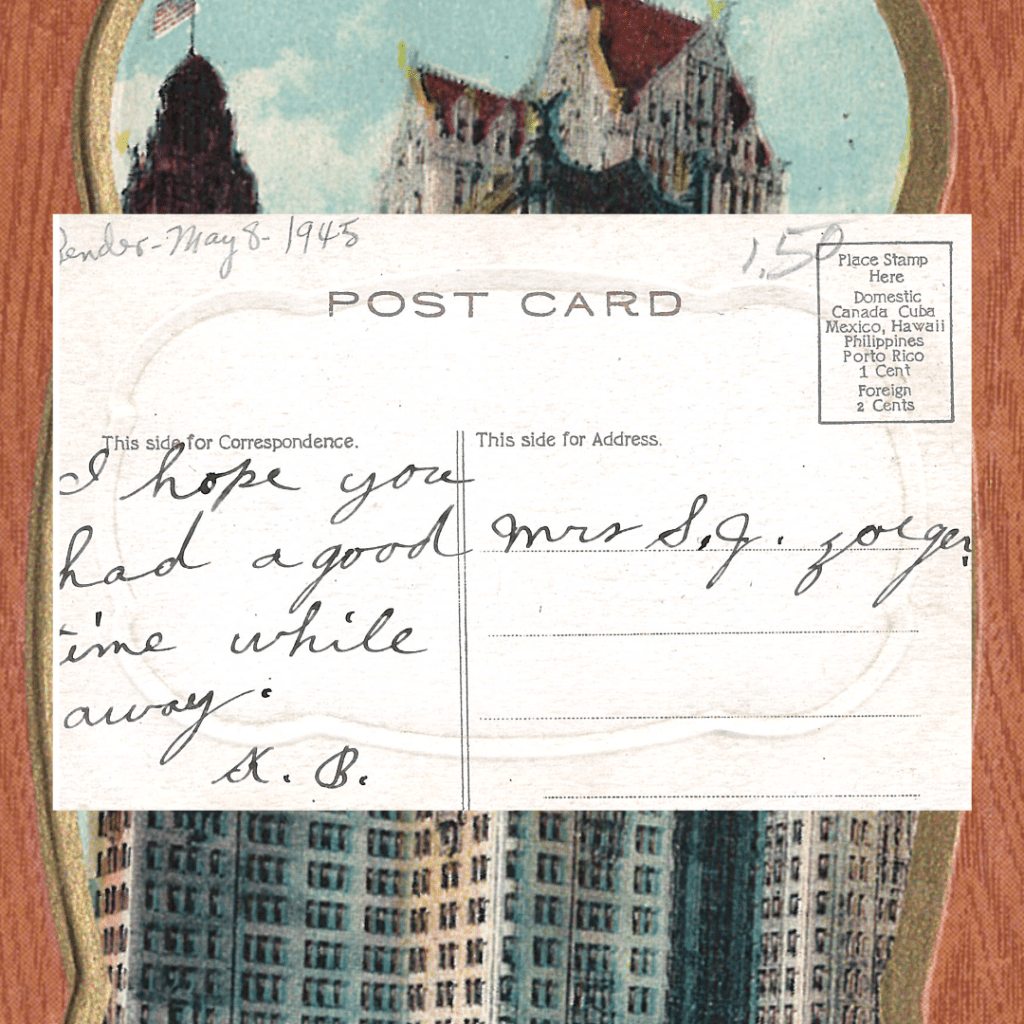 Bender-May 8-1945
1.50
POST CARD
Place Stamp
Here
Domestic
Canada Cuba
Mexico, Hawaii
Philippines
Porto Rico
1 Cent
Foreign
2 Cents
This side for Correspondence.
I hope you
had a good
time while
away.
K. B.
This side for Address.
Mrs S. J. Zolger.